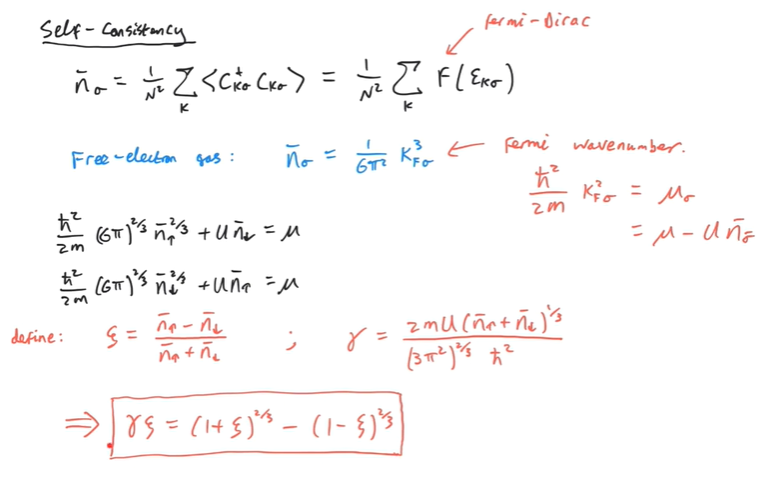 Self-Consistancy
Fermi-Dirac
n̄_σ = 1/N² Σ_k ⟨C†_kσ C_kσ⟩ = 1/N² Σ_k F(ε_kσ)
Free-electron gas: n̄_σ = 1/6π² k_Fσ³ ← Fermi wavenumber.
ħ²/2m k_Fσ² = μ_σ
= μ - U n̄_σ̄
ħ²/2m (6π)^2/3 n̄↑^2/3 + U n̄↓ = μ
ħ²/2m (6π)^2/3 n̄↓^2/3 + U n̄↑ = μ
define: ξ = (n̄↑ - n̄↓)/(n̄↑ + n̄↓) ; γ = 2mU(n̄↑ + n̄↓)^1/3 / (3π²)^2/3 ħ²
⇒ γξ = (1+ξ)^2/3 - (1-ξ)^2/3